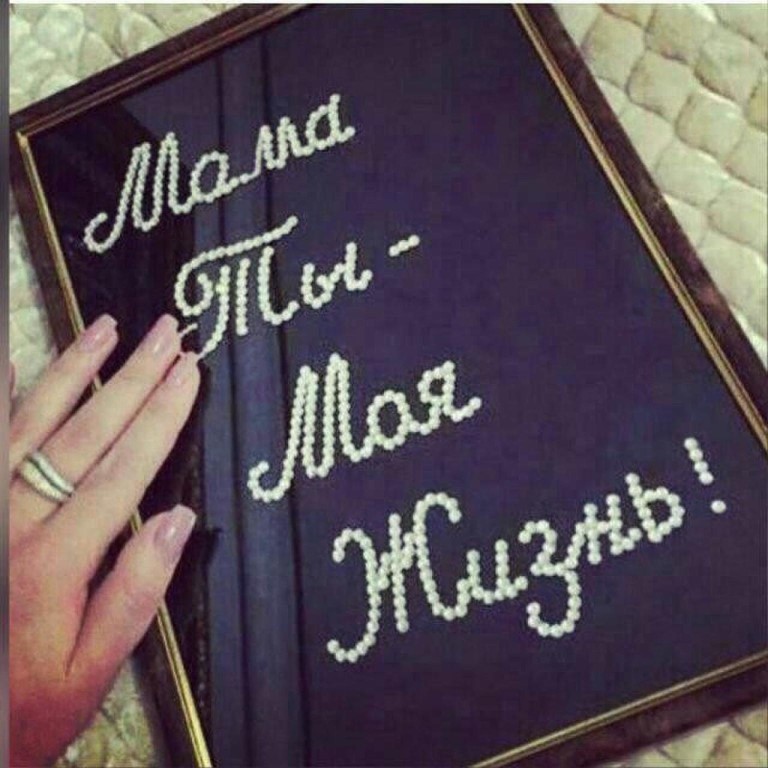 Мама
Ты -
Моя
Жизнь!